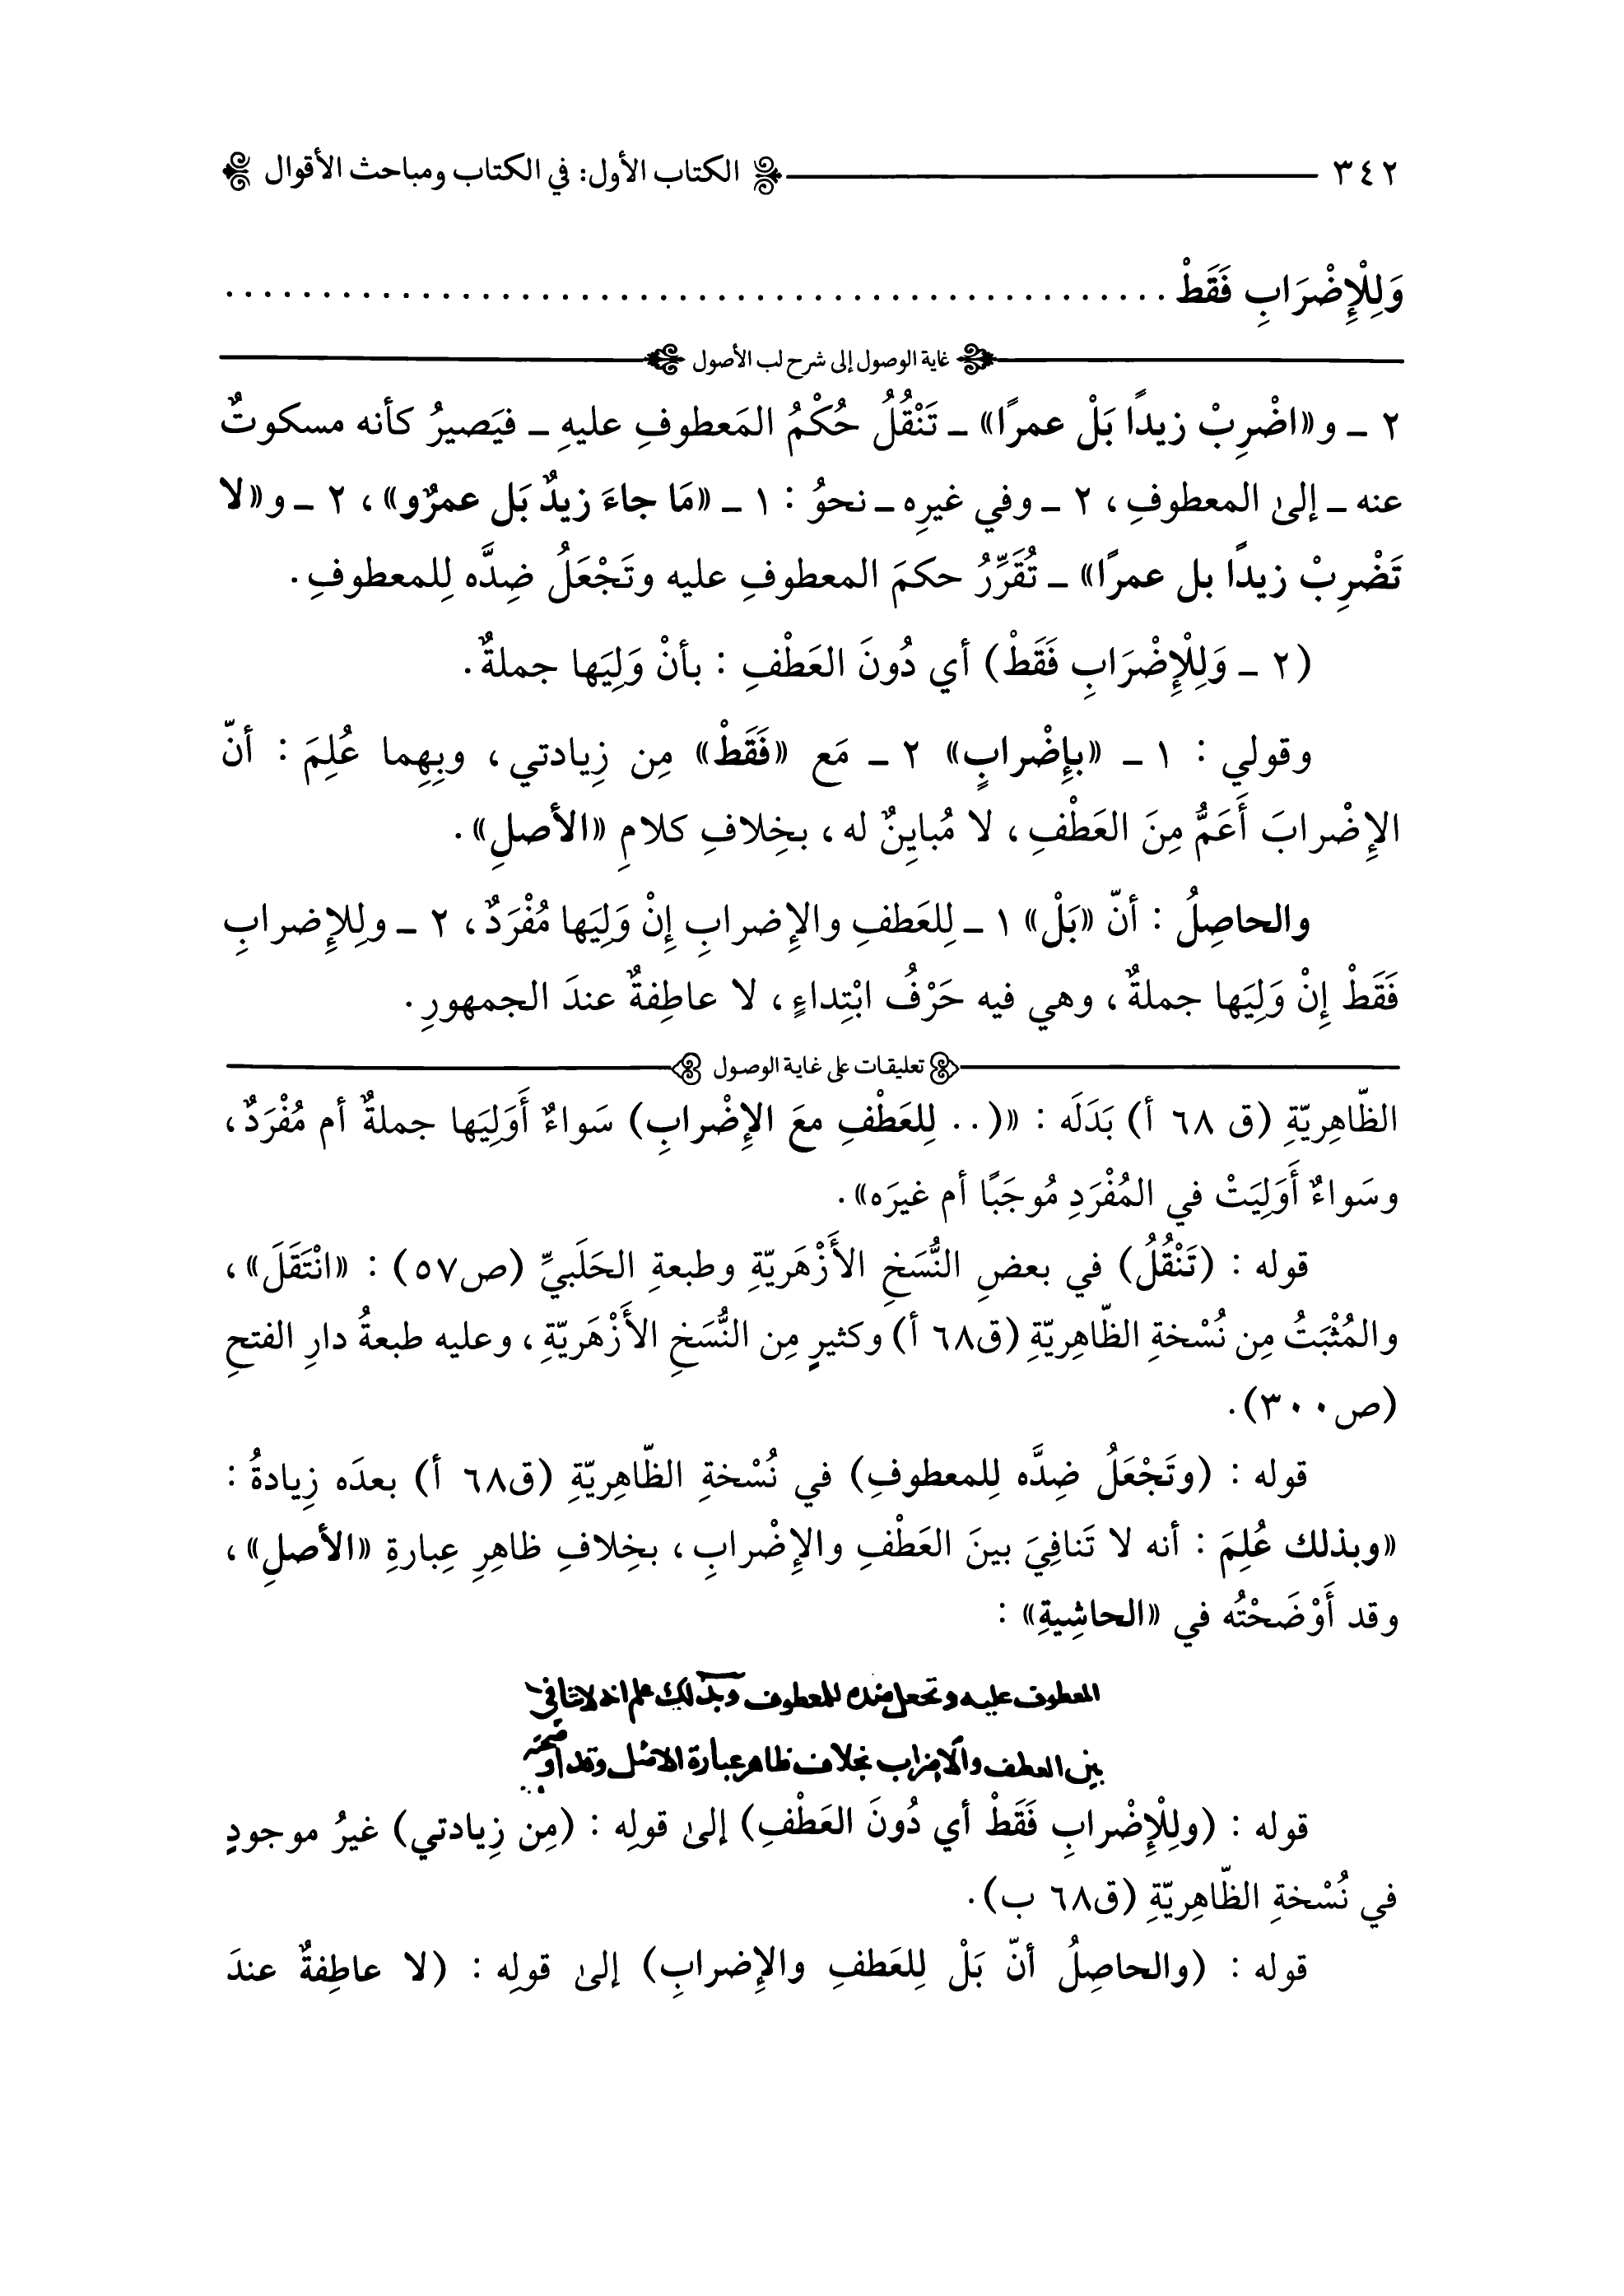 ٣٤٢ الكتاب الأول: في الكتاب ومباحث الأقوال
وَلِلْإِضْرَابِ فَقَطْ ................................................
غاية الوصول إلى شرح لب الأصول
٢ ـ و«اضْرِبْ زيدًا بَلْ عمرًا» ـ تَنْقُلُ حُكْمُ المَعطوفِ عليهِ ـ فيَصيرُ كأنه مسكوتٌ
عنه ـ إلىٰ المعطوفِ، ٢ ـ وفي غيرِه ـ نحوُ : ١ ـ «مَا جاءَ زيدٌ بَل عمرٌو»، ٢ ـ و«لا
تَضْرِبْ زيدًا بل عمرًا» ـ تُقَرِّرُ حكمَ المعطوفِ عليه وتَجْعَلُ ضِدَّه لِلمعطوفِ.
(٢ ـ وَلِلْإِضْرَابِ فَقَطْ) أي دُونَ العَطْفِ : بأنْ وَلِيَها جملةٌ.
وقولي : ١ ـ «بإِضْرابٍ» ٢ ـ مَع «فَقَطْ» مِن زِيادتي، وبِهِما عُلِمَ : أنّ
الإِضْرابَ أَعَمُّ مِنَ العَطْفِ، لا مُبايِنٌ له، بخِلافِ كلامِ «الأصلِ».
والحاصِلُ : أنّ «بَلْ» ١ ـ لِلعَطفِ والإِضرابِ إِنْ وَلِيَها مُفْرَدٌ، ٢ ـ ولِلإِضرابِ
فَقَطْ إِنْ وَلِيَها جملةٌ، وهي فيه حَرْفُ ابْتِداءٍ، لا عاطِفةٌ عندَ الجمهورِ.
تعليقات على غاية الوصول
الظّاهِريّةِ (ق ٦٨ أ) بَدَلَه : «(.. لِلعَطْفِ معَ الإِضْرابِ) سَواءٌ أَوَلِيَها جملةٌ أم مُفْرَدٌ،
وسَواءٌ أَوَلِيَتْ في المُفْرَدِ مُوجَبًا أم غيرَه».
قوله : (تَنْقُلُ) في بعضِ النُّسَخِ الأَزْهَريّةِ وطبعةِ الحَلَبيِّ (ص٥٧) : «انْتَقَلَ»،
والمُثْبَتُ مِن نُسْخةِ الظّاهِريّةِ (ق٦٨ أ) وكثيرٍ مِن النُّسَخِ الأَزْهَريّةِ، وعليه طبعةُ دارِ الفتحِ
(ص٣٠٠).
قوله : (وتَجْعَلُ ضِدَّه لِلمعطوفِ) في نُسْخةِ الظّاهِريّةِ (ق٦٨ أ) بعدَه زِيادةُ :
«وبذلك عُلِمَ : أنه لا تَنافِيَ بينَ العَطْفِ والإِضْرابِ، بخِلافِ ظاهِرِ عِبارةِ «الأصلِ»،
وقد أَوْضَحْتُه في «الحاشِيةِ» :
المعطوف عليه وتجعل ضده للمعطوف وبذلك علم انه لا تنافي
بين العطف والاضراب بخلاف ظاهر عبارة الاصل وقد اوضحته
قوله : (ولِلْإِضْرابِ فَقَطْ أي دُونَ العَطْفِ) إلىٰ قولِه : (مِن زِيادتي) غيرُ موجودٍ
في نُسْخةِ الظّاهِريّةِ (ق٦٨ ب).
قوله : (والحاصِلُ أنّ بَلْ لِلعَطفِ والإِضرابِ) إلىٰ قولِه : (لا عاطِفةٌ عندَ